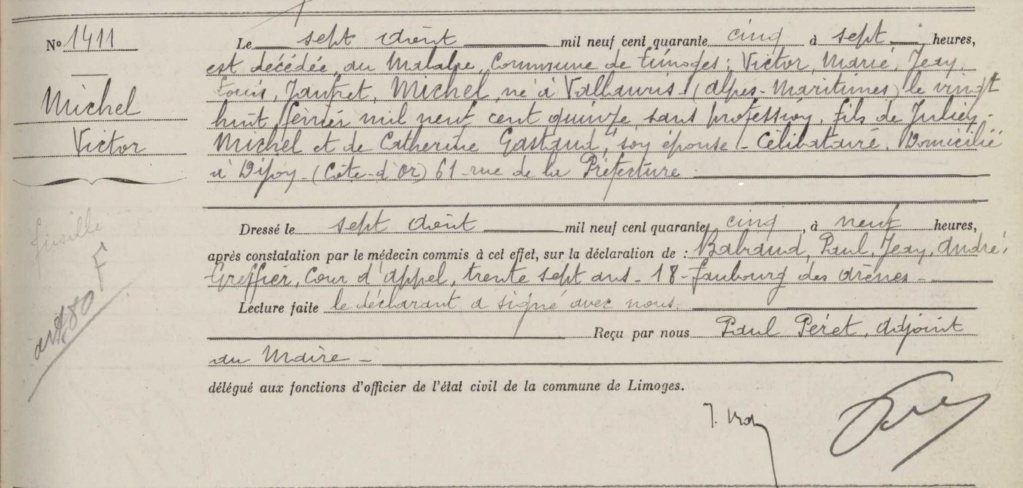 No 1411
Michel
Victor
fusillé
art 80 F
Le sept Août mil neuf cent quarante cinq à sept heures,
est décédée, au Malabre, Commune de Limoges: Victor, Marie, Jean,
Louis, Jaufret, Michel, né à Vallauris (Alpes-Maritimes) le vingt
huit février mil neuf cent quinze, sans profession, fils de Julien
Michel et de Catherine Gastaud, son épouse - Célibataire. Domicilié
à Dijon - (Côte-d'or) 61 - rue de la Préfecture
Dressé le sept Août mil neuf cent quarante cinq, à neuf heures,
après constatation par le médecin commis à cet effet, sur la déclaration de : Babraud, Paul, Jean, André,
Greffier, Cour d'Appel, trente sept ans - 18 - faubourg des Arènes -
Lecture faite le déclarant a signé avec nous.
Reçu par nous Paul Péret, Adjoint
au Maire -
délégué aux fonctions d'officier de l'état civil de la commune de Limoges.